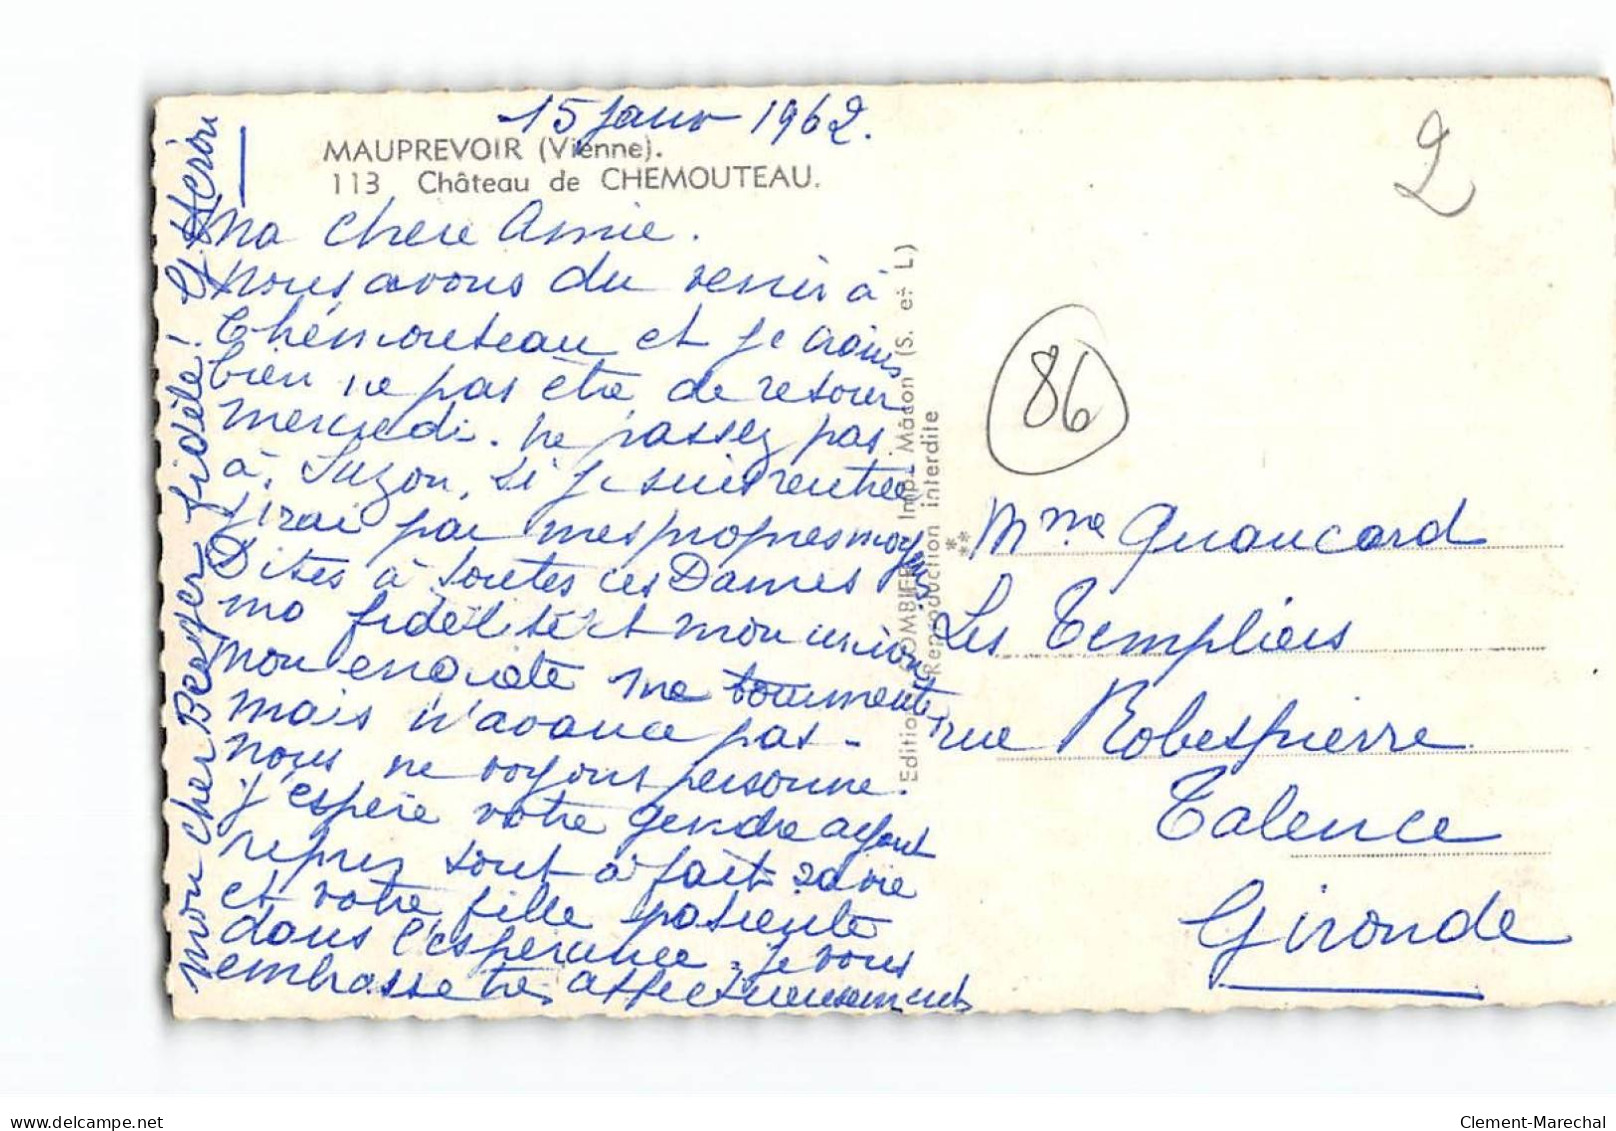 15 janv 1962.
MAUPREVOIR (Vienne).
113 Château de CHEMOUTEAU.
Ma chère Amie.
nous avons du venir à
Chémouteau et je crains
bien ne pas être de retour
mercredi. ne passez pas
à Suzon, si je suis rentrée
j'irai par mes propres moyens.
Dites à toutes ces Dames
ma fidélité et mon union
mon enquête me tourmente
mais n'avance pas -
nous ne voyons personne.
j'espère votre gendre ayant
repris tout à fait sa vie
et votre fille patiente
dans l'espérance. je vous
embrasse très affectueusement
mon cher Berger fidèle! G. Hérion
Edition COMBIER Imp. Mâcon (S. et L.)
Reproduction interdite
2
86
Mme Quancard
Les Templiers
rue Robespierre
Talence
Gironde
delcampe.net
Clement-Marechal